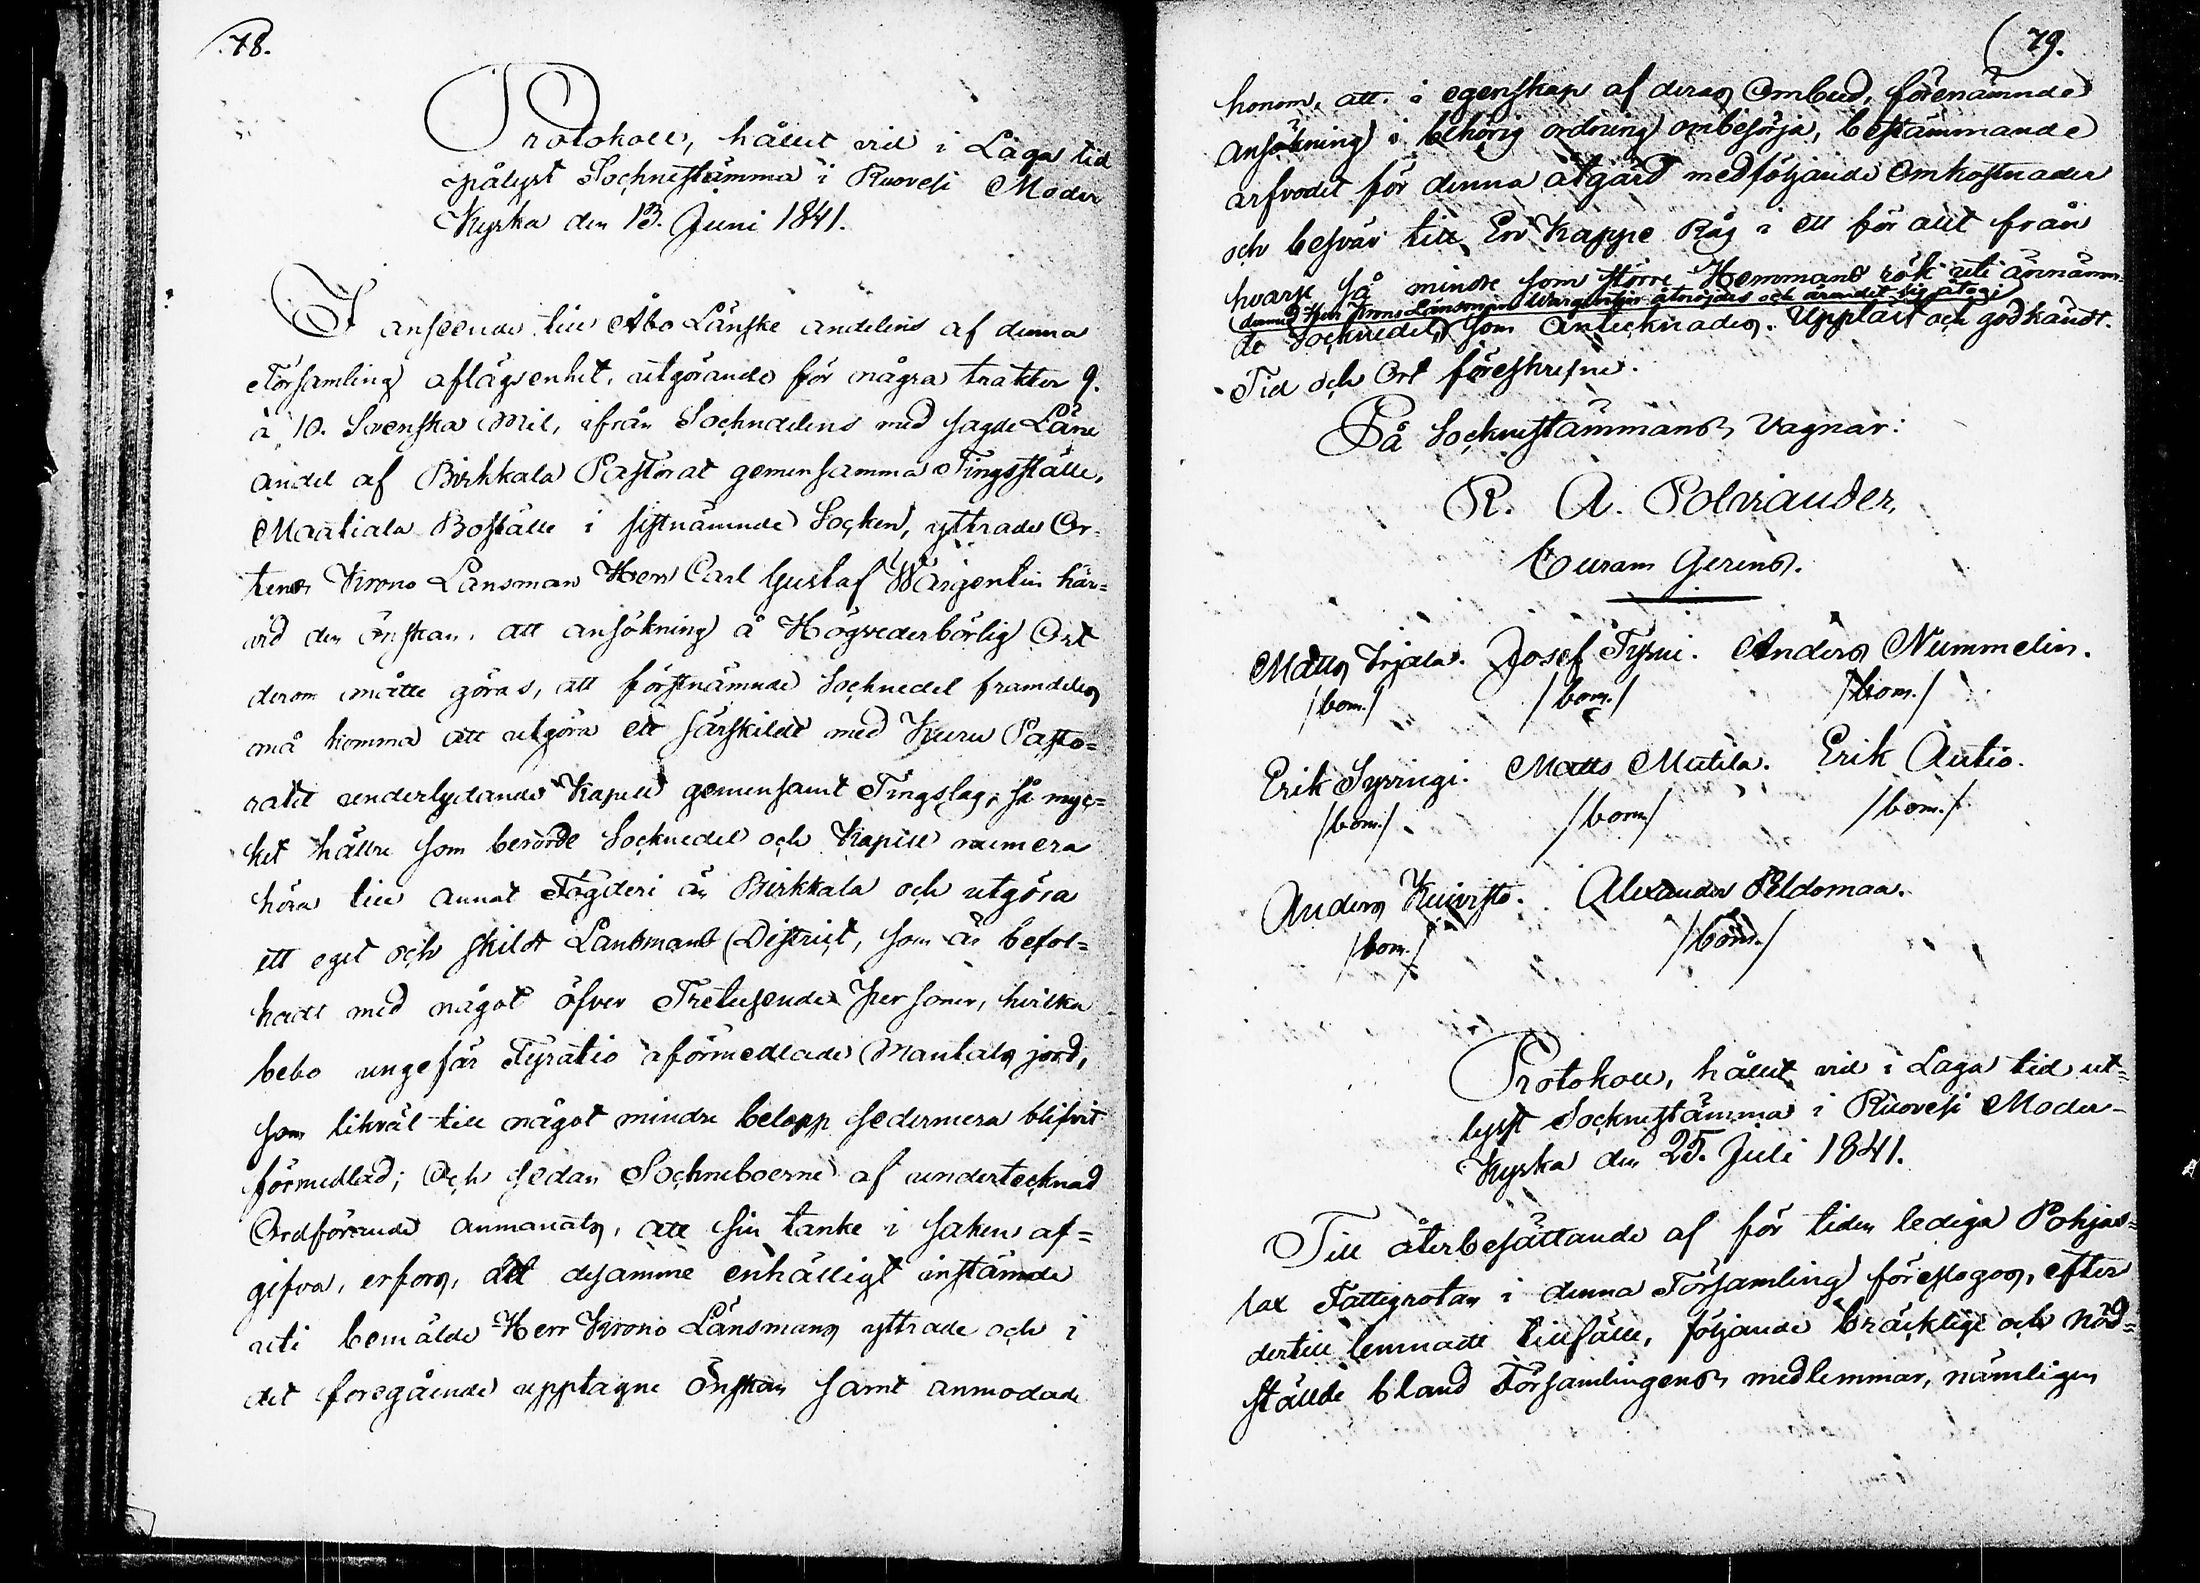 78.
Protokoll, hållit vid i Laga tid
pålyst Sochnestämma i Ruovesi Moder
Kyrka den 13. Juni 1841.
I anseende till Åbo Länske andelens af denna
Församling aflägsenhet, utgörande för några trakter 9.
à 10. Svenska Mil, ifrån Sochnedelens med sagde Läns
andel af Birkkala Pastorat gemensamma Tingsställe,
Maatiala Boställe i sistnämnde Socken, yttrade Or-
tens Krono Länsman Herr Carl Gustaf Wargentin här-
vid den önskan, att ansökning å Högvederbörlig Ort
derom måtte göras, att förstnämnde Sochnedel framdeles
må komma att utgöra ett särskildt med Kuru Pasto=
ratet underlydande Kapell gemensamt Tingslag, så myc=
ket hällre som berörde Socknedel och Kapell numera
höra till annat Fögderi än Birkkala och utgöra
ett eget och skildt Länsmans District, som är befol=
kadt med något öfver Tretusende Personer, hvilka
bebo ungefär Fyratio oförmedlade Mantals jord,
som likväl till något mindre belopp sedermera blifvit
förmedlad; Och sedan Sochneboerne af undertecknad
Ordförande anmanats, att sin tanke i saken af=
gifva, erfors, att desamme enhälligt instämde
uti bemälde Herr Krono Länsmans yttrade och i
det föregående upptagne önskan samt anmodade
79.
honom, att i egenskap af deras Ombud, förenämnde
ansökning i behörig ordning ombesörja, bestämmande
arfvodet för denna åtgärd medföljande Omkostnader
och besvär till En Kappe Råg i ett för allt från
hvarje så mindre som större Hemmans rök uti ännämn-
(dermed Herr Krono Länsman Wargentin åtnöjdes och ärendet sig åtog)
de Socknedel, som Antecknades. Uppläst och godkändt.
Tid och Ort föreskrefne.
På Socknestämmans Vägnar:
R. A. Polviander,
Curam Gerens.
Matts Yrjälä. Josef Tysni. Anders Nummelin.
/bom./ /bom./ /bom./
Erik Syrringi. Matts Mutila. Erik Autio.
/bom./ /bom/ /bom./
Anders Kuivisto. Alexander Peldomaa.
/bom./ /bom./
Protokoll, hållit vid i Laga tid ut=
lyst Socknestämma i Ruovesi Moder-
Kyrka den 25. Juli 1841.
Till återbesättande af för tiden lediga Pohjas=
lax Fattigrotan i denna Församling föreslogos, efter
dertill lemnadt tillfälle, följande bräcklige och nöd=
ställde bland Församlingens medlemmar, nämligen